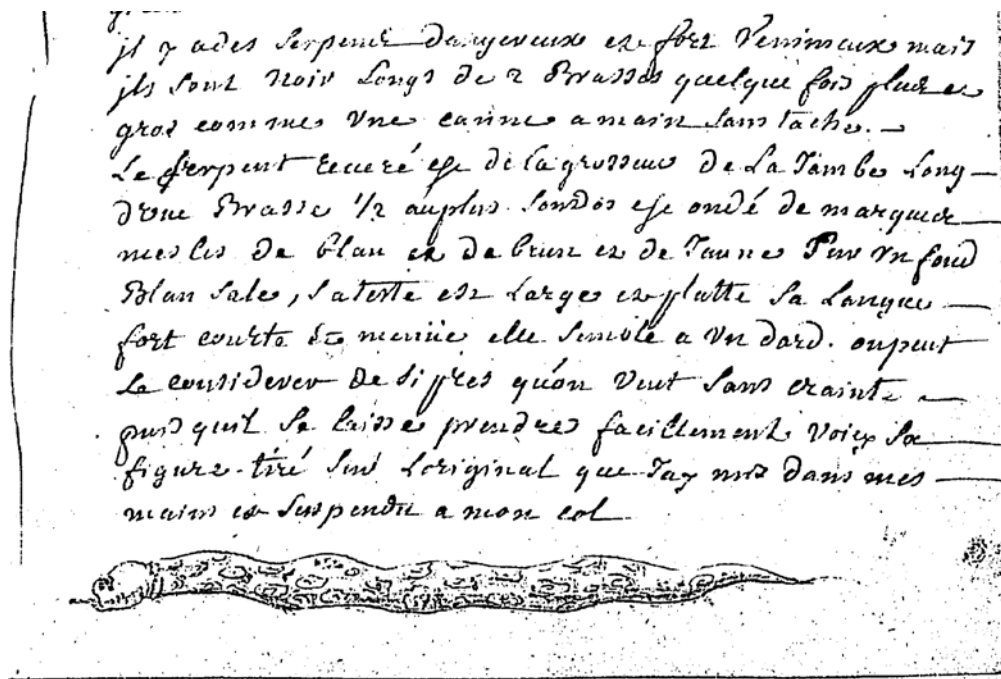 jl y a des serpens dangereux et fort Venimeux mais
jls sont noir Longs de 2 Brasses quelque fois plus et
gros comme Vne canne a main sans tache.
Le serpent reveré est de la grosseur de La Jambe Long
d'vne Brasse 1/2 au plus. son dos est ondé de marques
meslés de blan et de brun et de Jaune sur Vn fond
Blan sale, sa teste est Large et platte sa Langue
fort courte et menüe elle semble a Vn dard. on peut
Le considerer de si pres qu'on veut sans crainte
puis quil se laisse prendre facillement Voicy sa
figure tiré sur L'original que Jay mis dans mes
mains et suspendu a mon col